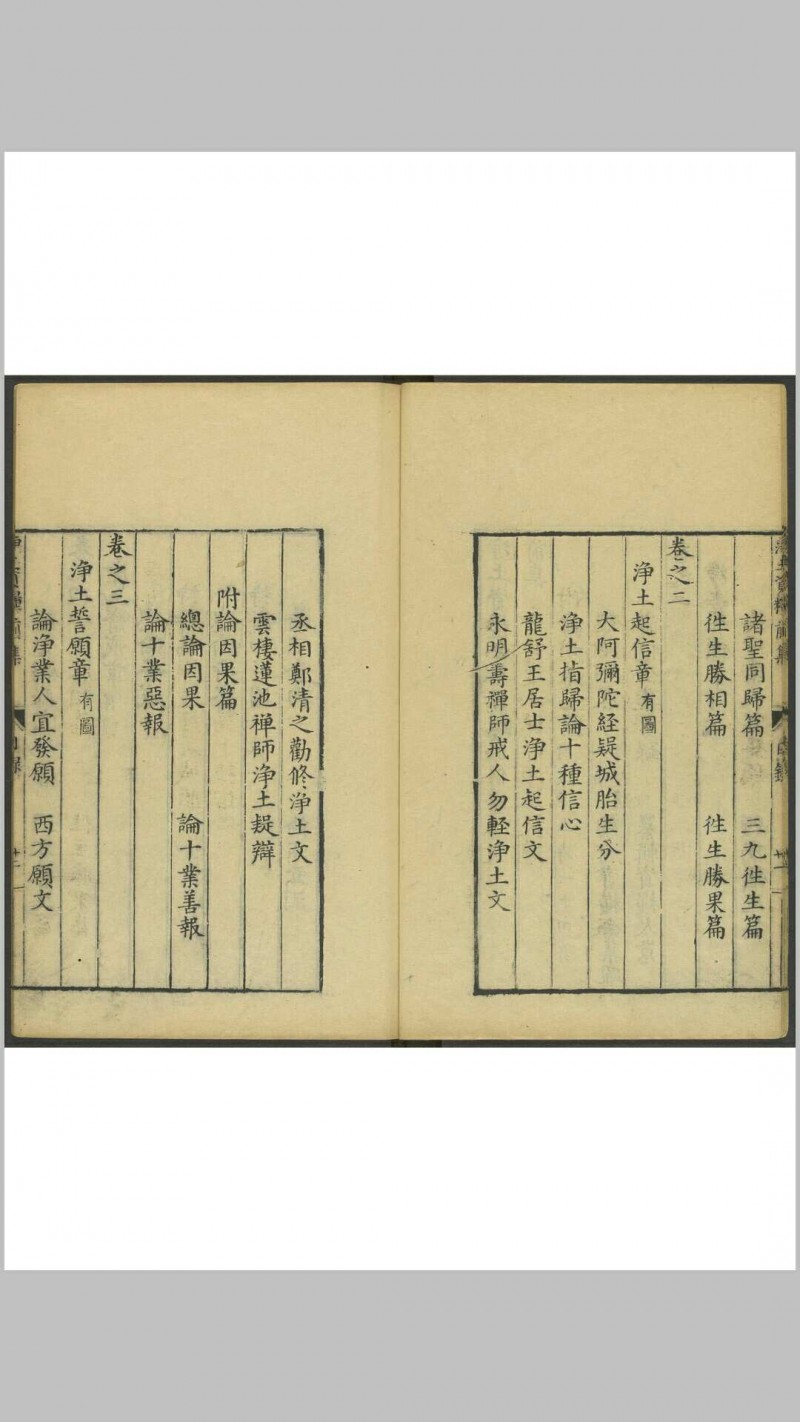 諸聖同歸篇　三九徃生篇
徃生勝相篇　徃生勝果篇
卷之二
浄土起信章有圖
大阿彌陀経疑城胎生分
浄土指歸論十種信心
龍舒王居士浄土起信文
永明壽禪師戒人勿輕浄土文
丞相鄭清之勸修浄土文
雲棲蓮池禅師浄土疑辯
附論因果篇
總論因果　論十業善報
論十業惡報
卷之三
浄土誓願章有圖
論浄業人宜發願　西方願文